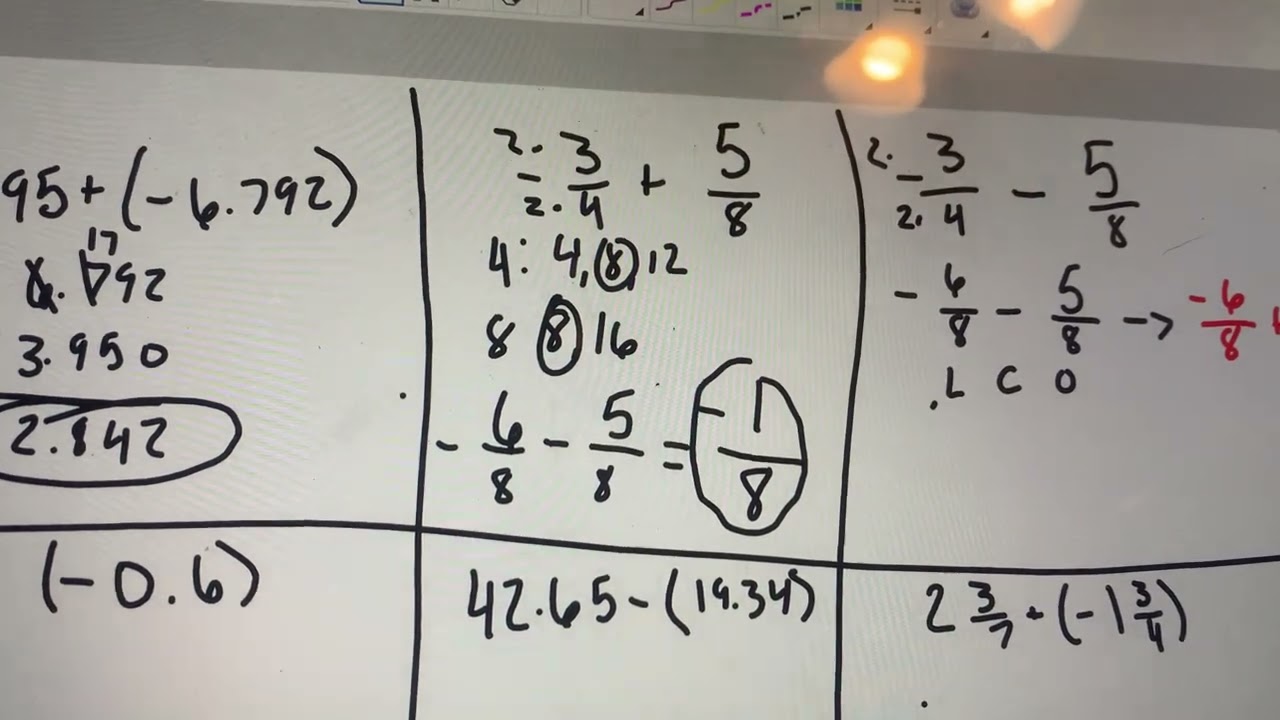 95 + (- 6.792)
17
6.792
3.950
2.842
2 · 3 5
- — + —
2 · 4 8
4: 4, 8, 12
8 8 16
- 6/8 - 5/8 = - 1/8
2 · 3 5
- — - —
2 · 4 8
- 6/8 - 5/8 -> - 6/8
L C O
(- 0.6)
42.65 - (19.34)
2 3/7 + (-1 3/4)